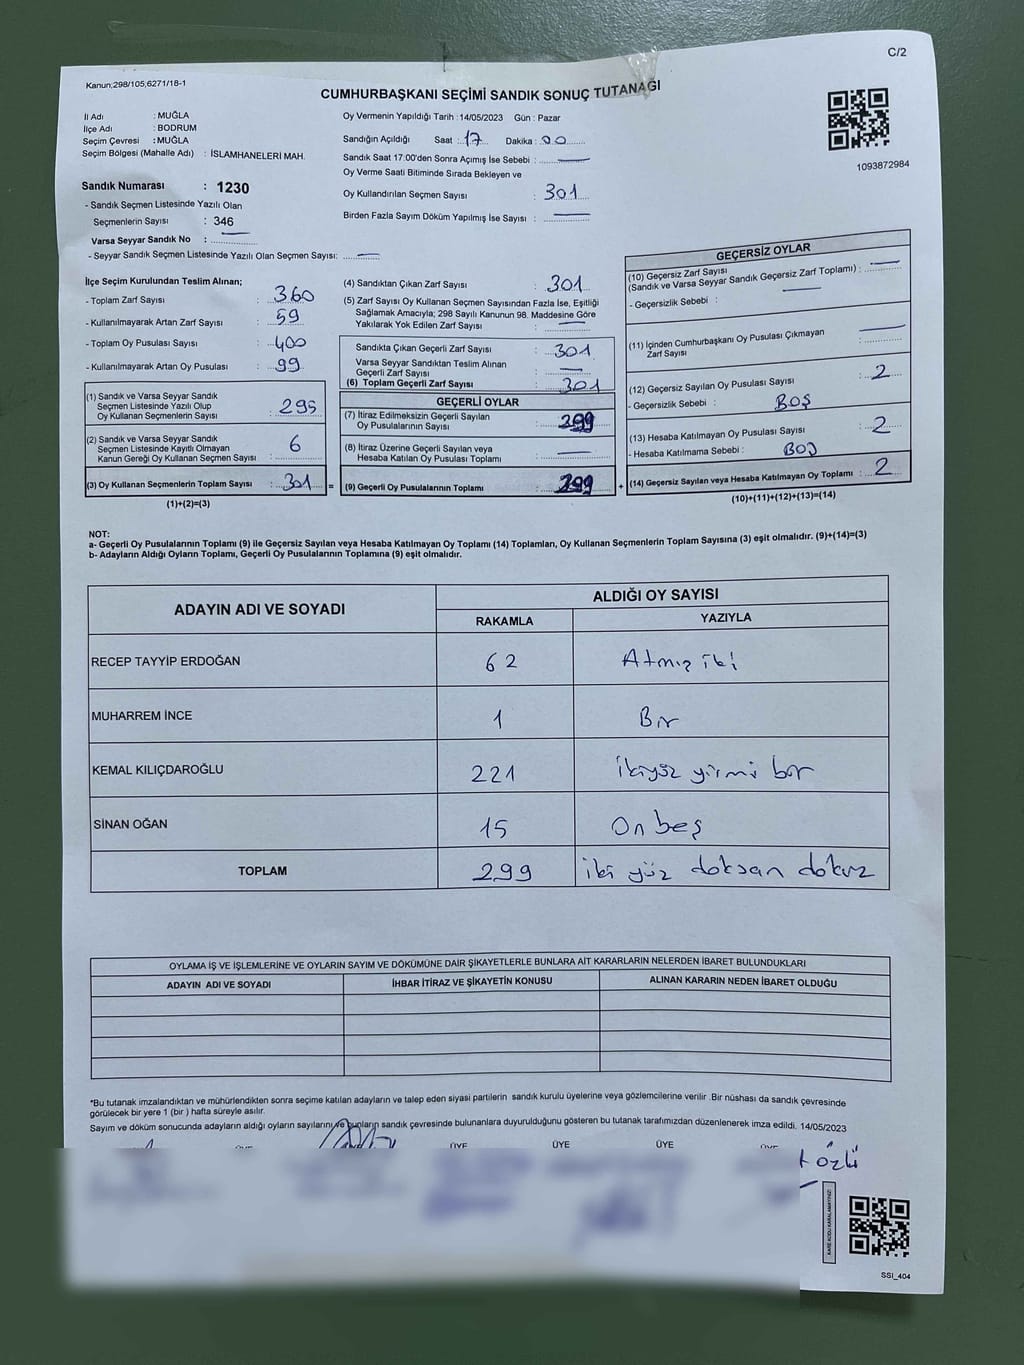 C/2
Kanun;298/105;6271/18-1
CUMHURBAŞKANI SEÇİMİ SANDIK SONUÇ TUTANAĞI
1093872984
İl Adı : MUĞLA
İlçe Adı : BODRUM
Seçim Çevresi : MUĞLA
Seçim Bölgesi (Mahalle Adı) : İSLAMHANELERİ MAH.
Sandık Numarası : 1230
- Sandık Seçmen Listesinde Yazılı Olan
Seçmenlerin Sayısı : 346
Varsa Seyyar Sandık No :
- Seyyar Sandık Seçmen Listesinde Yazılı Olan Seçmen Sayısı:
Oy Vermenin Yapıldığı Tarih :14/05/2023 Gün : Pazar
Sandığın Açıldığı Saat : 17 Dakika : 00
Sandık Saat 17:00'den Sonra Açımış İse Sebebi :
Oy Verme Saati Bitiminde Sırada Bekleyen ve
Oy Kullandırılan Seçmen Sayısı : 301
Birden Fazla Sayım Döküm Yapılmış İse Sayısı :
İlçe Seçim Kurulundan Teslim Alınan;
- Toplam Zarf Sayısı : 360
- Kullanılmayarak Artan Zarf Sayısı : 59
- Toplam Oy Pusulası Sayısı : 400
- Kullanılmayarak Artan Oy Pusulası : 99
(1) Sandık ve Varsa Seyyar Sandık
Seçmen Listesinde Yazılı Olup
Oy Kullanan Seçmenlerin Sayısı : 295
(2) Sandık ve Varsa Seyyar Sandık
Seçmen Listesinde Kayıtlı Olmayan
Kanun Gereği Oy Kullanan Seçmen Sayısı : 6
(3) Oy Kullanan Seçmenlerin Toplam Sayısı : 301 =
(1)+(2)=(3)
(4) Sandıktan Çıkan Zarf Sayısı : 301
(5) Zarf Sayısı Oy Kullanan Seçmen Sayısından Fazla İse, Eşitliği
Sağlamak Amacıyla; 298 Sayılı Kanunun 98. Maddesine Göre
Yakılarak Yok Edilen Zarf Sayısı :
Sandıkta Çıkan Geçerli Zarf Sayısı : 301
Varsa Seyyar Sandıktan Teslim Alınan
Geçerli Zarf Sayısı :
(6) Toplam Geçerli Zarf Sayısı : 301
GEÇERLİ OYLAR
(7) İtiraz Edilmeksizin Geçerli Sayılan
Oy Pusulalarının Sayısı : 299
(8) İtiraz Üzerine Geçerli Sayılan veya
Hesaba Katılan Oy Pusulası Toplamı :
(9) Geçerli Oy Pusulalarının Toplamı : 299 +
GEÇERSİZ OYLAR
(10) Geçersiz Zarf Sayısı
(Sandık ve Varsa Seyyar Sandık Geçersiz Zarf Toplamı) :
- Geçersizlik Sebebi :
(11) İçinden Cumhurbaşkanı Oy Pusulası Çıkmayan
Zarf Sayısı :
(12) Geçersiz Sayılan Oy Pusulası Sayısı : 2
- Geçersizlik Sebebi : BOŞ
(13) Hesaba Katılmayan Oy Pusulası Sayısı : 2
- Hesaba Katılmama Sebebi : BOŞ
(14) Geçersiz Sayılan veya Hesaba Katılmayan Oy Toplamı : 2
(10)+(11)+(12)+(13)=(14)
NOT:
a- Geçerli Oy Pusulalarının Toplamı (9) ile Geçersiz Sayılan veya Hesaba Katılmayan Oy Toplamı (14) Toplamları, Oy Kullanan Seçmenlerin Toplam Sayısına (3) eşit olmalıdır. (9)+(14)=(3)
b- Adayların Aldığı Oyların Toplamı, Geçerli Oy Pusulalarının Toplamına (9) eşit olmalıdır.
ADAYIN ADI VE SOYADI ALDIĞI OY SAYISI
RAKAMLA YAZIYLA
RECEP TAYYİP ERDOĞAN 62 Atmış iki
MUHARREM İNCE 1 Bir
KEMAL KILIÇDAROĞLU 221 ikiyüz yirmi bir
SİNAN OĞAN 15 On beş
TOPLAM 299 iki yüz doksan dokuz
OYLAMA İŞ VE İŞLEMLERİNE VE OYLARIN SAYIM VE DÖKÜMÜNE DAİR ŞİKAYETLERLE BUNLARA AİT KARARLARIN NELERDEN İBARET BULUNDUKLARI
ADAYIN ADI VE SOYADI İHBAR İTİRAZ VE ŞİKAYETİN KONUSU ALINAN KARARIN NEDEN İBARET OLDUĞU
*Bu tutanak imzalandıktan ve mühürlendikten sonra seçime katılan adayların ve talep eden siyasi partilerin sandık kurulu üyelerine veya gözlemcilerine verilir .Bir nüshası da sandık çevresinde
görülecek bir yere 1 (bir ) hafta süreyle asılır.
Sayım ve döküm sonucunda adayların aldığı oyların sayılarını ve bunların sandık çevresinde bulunanlara duyurulduğunu gösteren bu tutanak tarafımızdan düzenlenerek imza edildi. 14/05/2023
ÜYE ÜYE ÜYE
özlü
KARE KODU KARALAMAYINIZ!
SSI_404